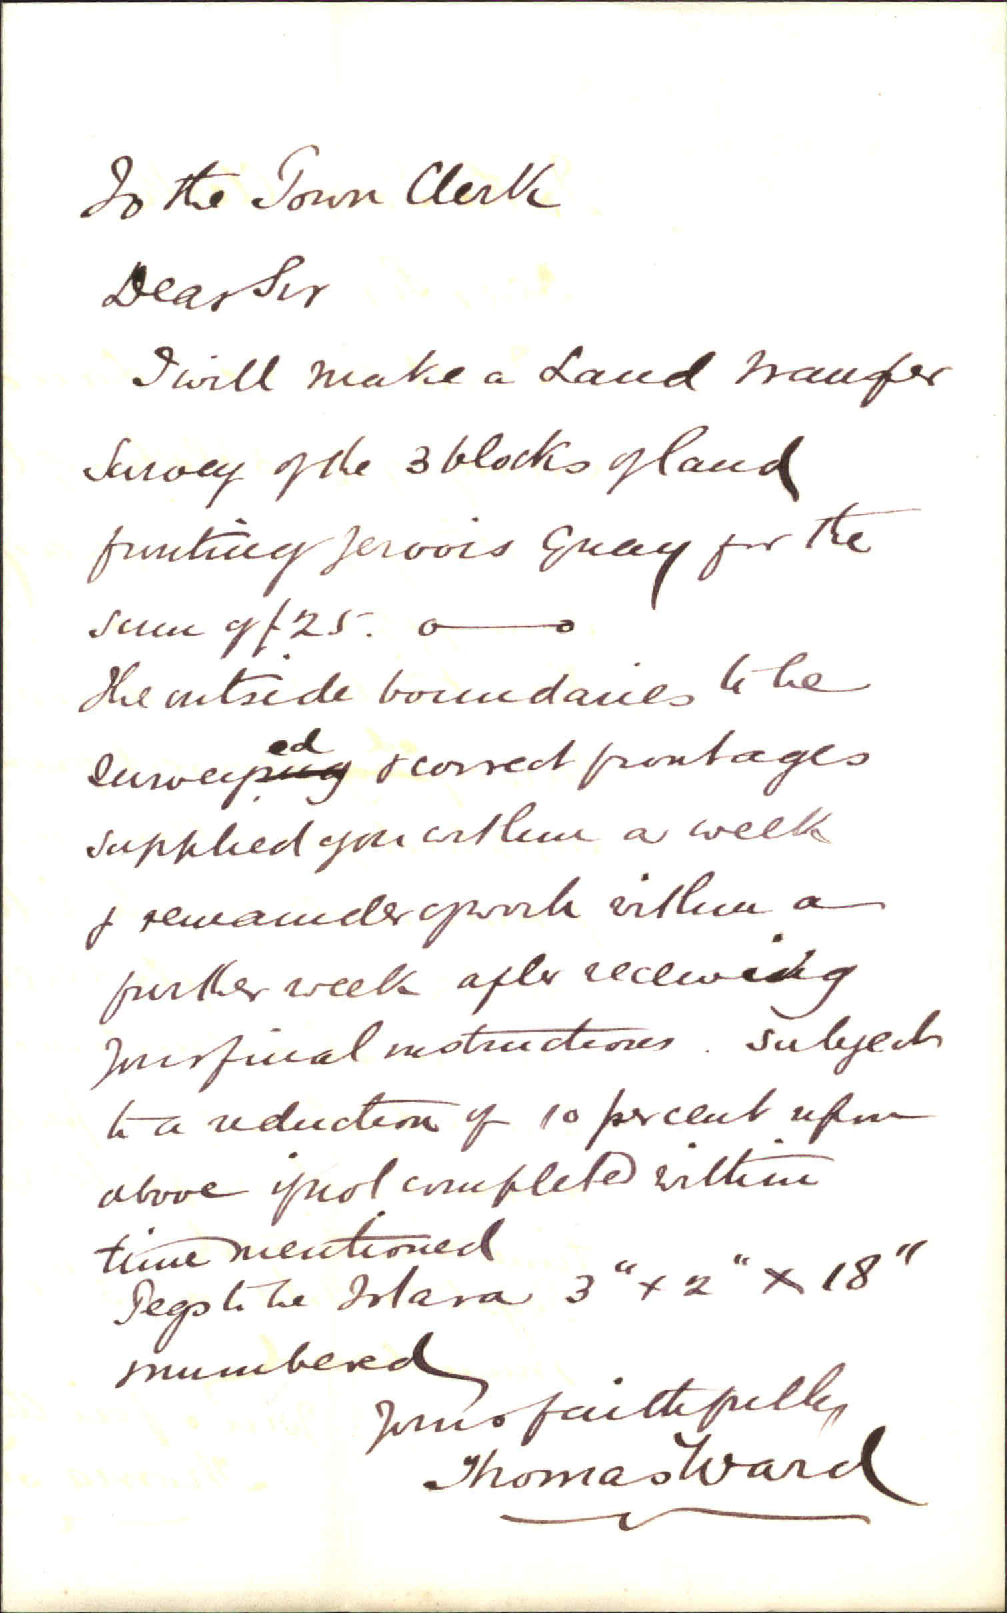 To the Town Clerk
Dear Sir
I will make a Land Transfer
Survey of the 3 blocks of land
fronting Jervois Quay for the
sum of £25. o——o
The outside boundaries to be
surveyed & correct frontages
supplied you within a week
& remainder of work within a
further week after receiving
your final instructions. Subject
to a reduction of 10 per cent upon
above if not completed within
time mentioned
Pegs to be Totara 3" x 2" x 18"
numbered
Yours faithfully
Thomas Ward